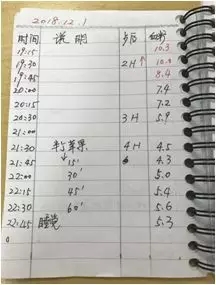 2018.12.1
时间 说明 多后 血糖
19:15 10.3
19:30 2H↑ 10.0
19:45 8.4
20:00 7.4
20:15 7.2
20:30 3H 5.9
21:00
21:30 半个苹果 4H 4.5
21:45 15' 4.3
22:00 30' 5.0
22:15 45' 5.4
22:30 60' 5.6
22:45 睡觉 5.3